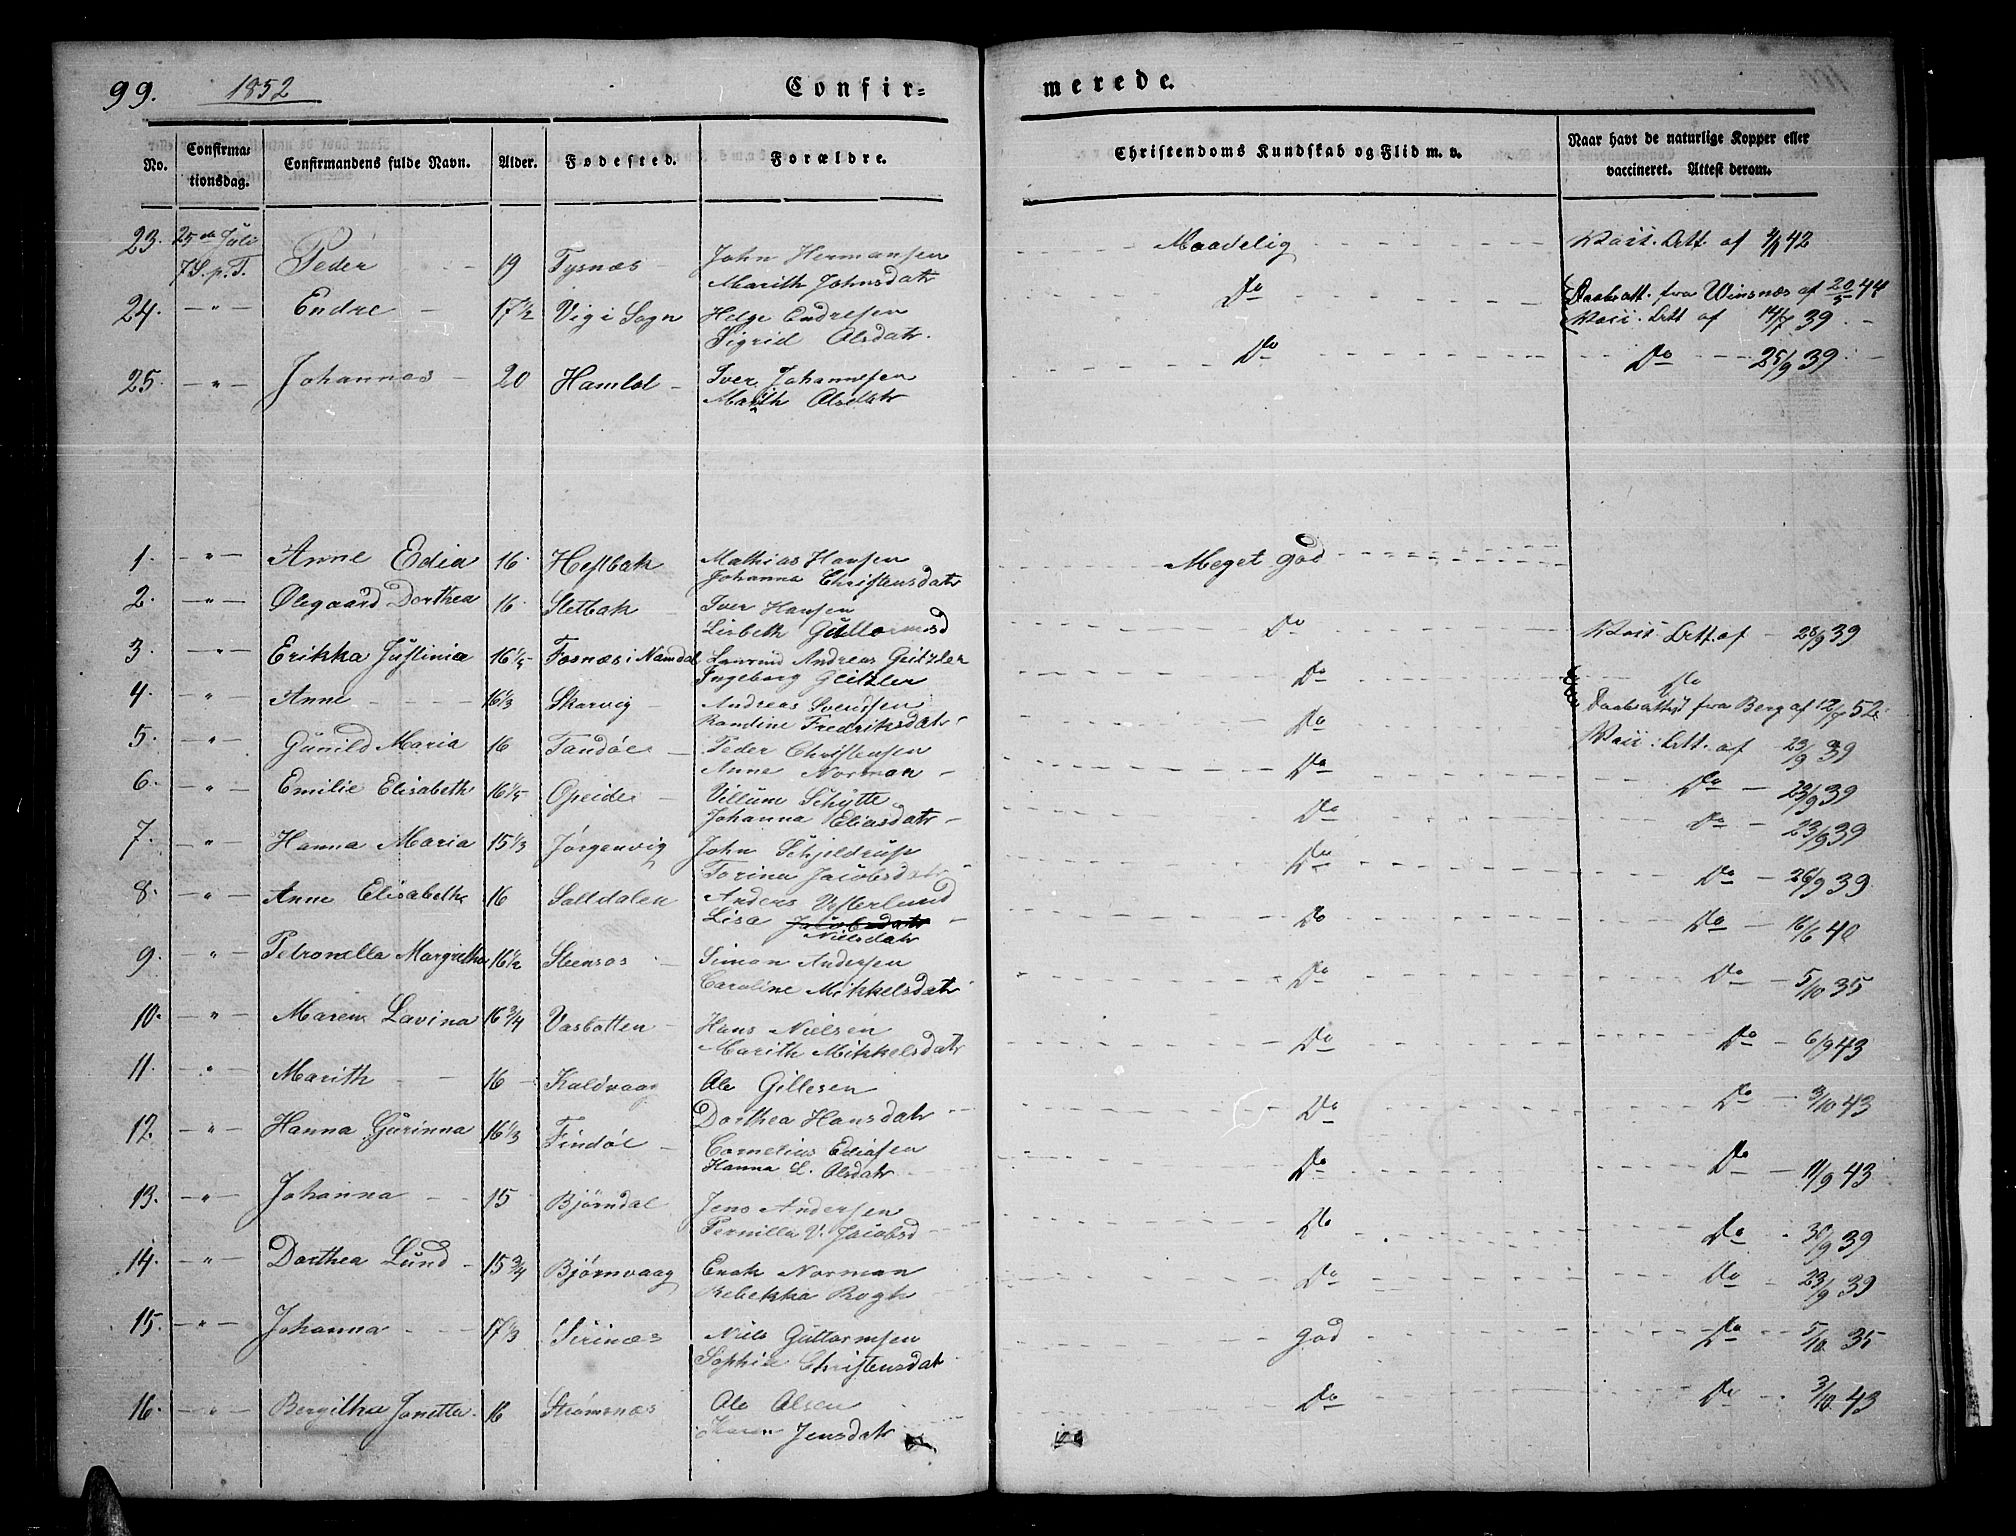 99. 1852 Confir- merede.
No. Confirma-tionsdag. Confirmandens fulde Navn. Alder. Fødested. Forældre. Christendoms Kundskab og Flid m. v. Naar havt de naturlige Kopper eller vaccineret. Attest derom.
23. 25de Juli Peder 19 Tysnæs John Hermansen Maadelig Att. af 42
7 S. p. T. Marith Johnsdatr
24. " Endre 17 1/2 Vig i Sogn Helge Endresen Do Daabsatt. fra Winsnæs af 20/5 44
Sigrid Olsdatr. Att af 14/7 39
25. " Johannes 20 Hamlot Iver Johannsen Do Do 25/9 39
Marith Olsdatr
1. " Anne Edia 16 Hestbak Mathias Hansen Meget god
Johanna Christensdatr
2. " Olegaard Dorthea 16 Sletbak Iver Hansen Do Att. af 28/9 39
Lisbeth Guttormsd
3. " Erikka Justinia 16 1/5 Fosnæs i Namdal Andreas Geitzler Do Do
Ingeborg Geitzler Daabsattest fra Berg af 12/7 52
4. " Anne 16 1/3 Skarvig Andreas Svendsen Do Att. af 23/9 39
Randine Fredriksdatr
5. " Gunild Maria 16 Tandøe Peder Christensen Do Do 23/9 39
Anne Norman
6. " Emilie Elisabeth 16 1/5 Opeide Villum Schytte Do Do 23/9 39
Johanna Eliasdatr
7. " Hanna Maria 15 1/3 Jørgenvig John Schjeldrup Do Do 26/9 39
Torina Jacobsdatr
8. " Anne Elisabeth 16 Saltdalen Anders Vesterlund Do Do 16/6 40
Lisa Jacobsdatr
Nielsdatr
9. " Petronella Margretha 16 1/2 Stensos Simon Andersen Do Do 5/10 35
Caroline Mikkelsdatr
10. " Maren Lavina 16 3/4 Vasbotten Hans Nielsen Do Do 6/9 43
Marith Mikkelsdatr
11. " Marith 16 Kaldvaag Ole Gillesen Do Do 3/10 43
Dorthea Hansdatr
12. " Hanna Gurinna 16 1/3 Findøe Cornelius Ediasen Do Do 11/9 43
Hanna L. Olsdatr
13. " Johanna 15 Bjørndal Jens Andersen Do Do 30/9 39
Pernilla V. Jacobsd
14. " Dorthea Lund 15 3/4 Bjørnvaag Enok Norman Do Do 23/9 39
Rebekka Bogh
15. " Johanna 17 1/3 Sirinæs Niels Guttormsen god Do 5/10 35
Sophia Christensdatr
16. " Bergitha Janetta 16 Strømsnæs Ole Olsen Do Do 3/10 43
Karen Jensdatr